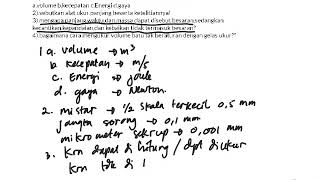 a.volume b.kecepatan c.Energi d.gaya
2) sebutkan alat ukur panjang beserta ketelitiannya!
3) mengapa panjang,waktu,dan massa dapat disebut besaran,sedangkan
kecantikan,kepandaian,dan kebaikan tidak termasuk besaran?
4) bagaimana cara mengukur volume batu tak beraturan dengan gelas ukur?
1 a. volume → m³
b. kecepatan → m/s
c. Energi → joule
d. gaya → Newton.
2. mistar → ½ skala terkecil 0,5 mm
jangka sorong → 0,1 mm
mikrometer sekrup → 0,001 mm
3. krn dapat di hitung / dpt diukur
krn tdk di